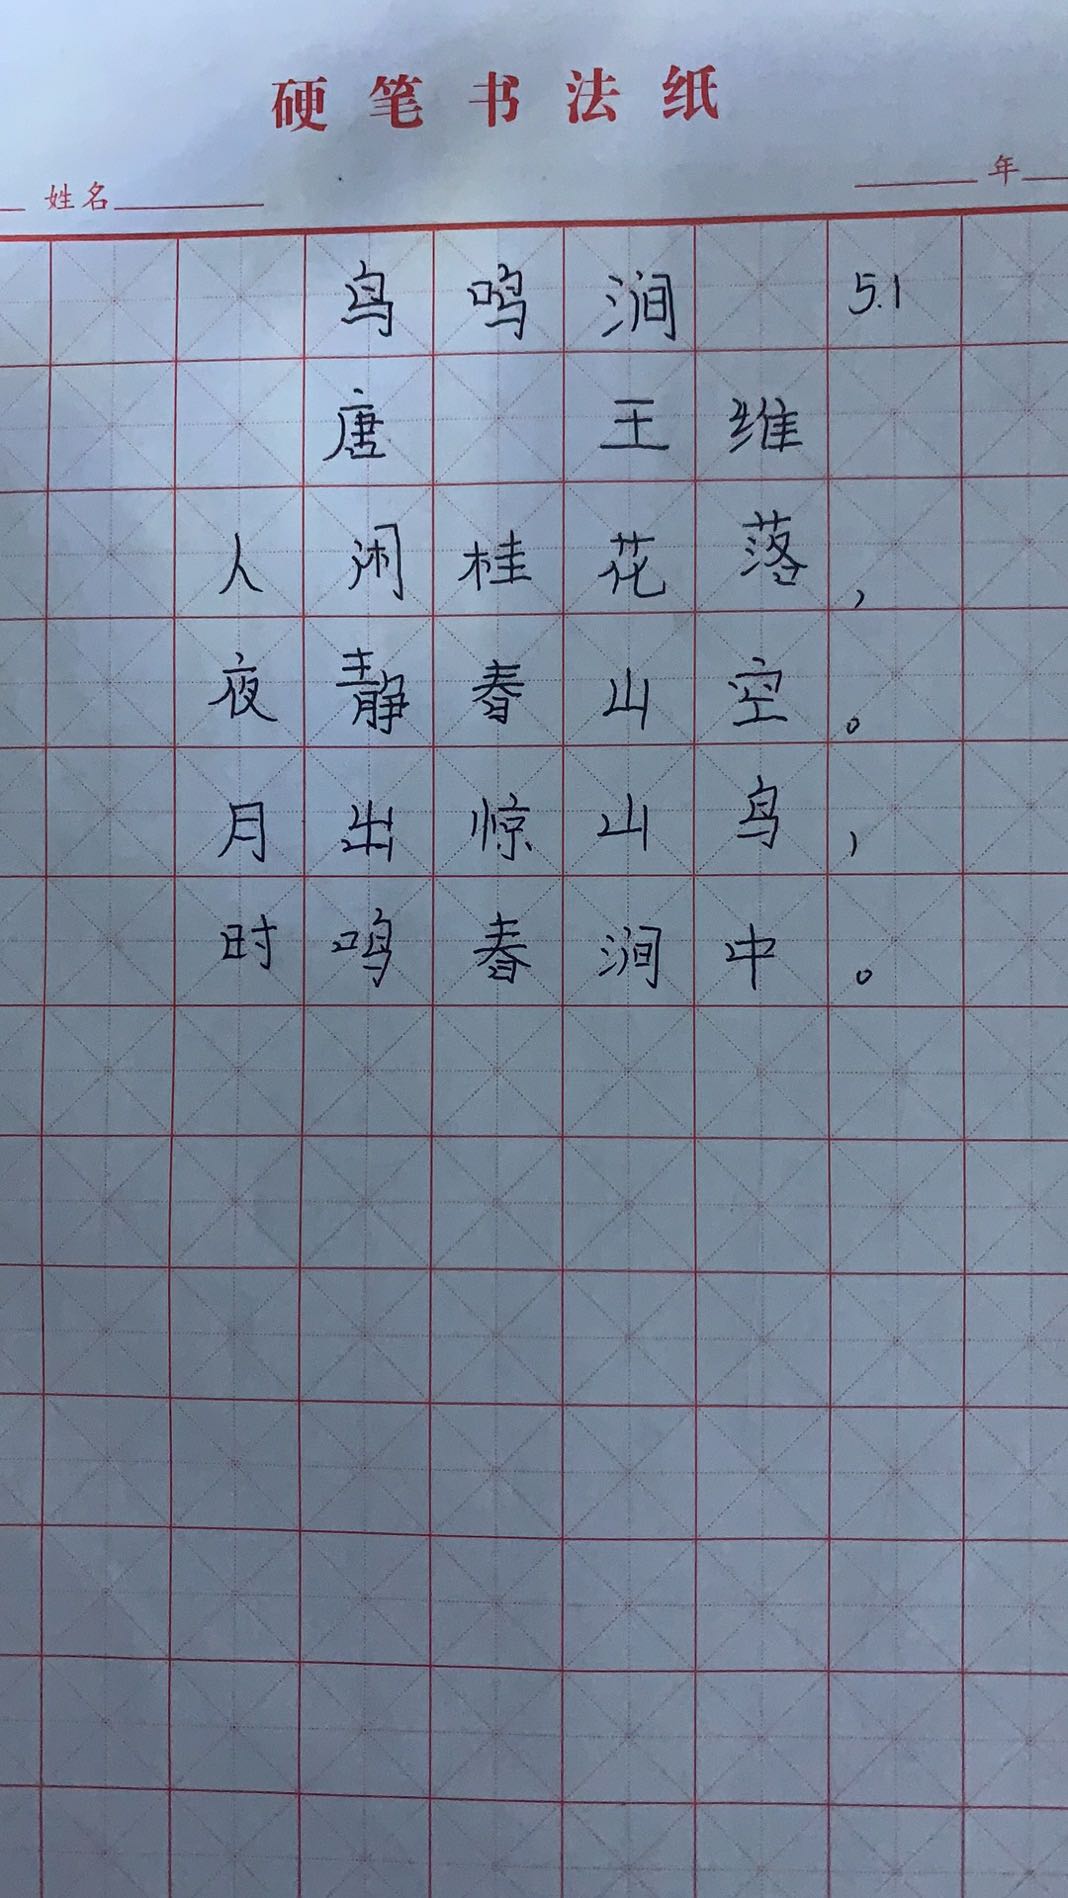 硬笔书法纸
姓名 年
鸟鸣涧 5.1
唐 王维
人闲桂花落，
夜静春山空。
月出惊山鸟，
时鸣春涧中。